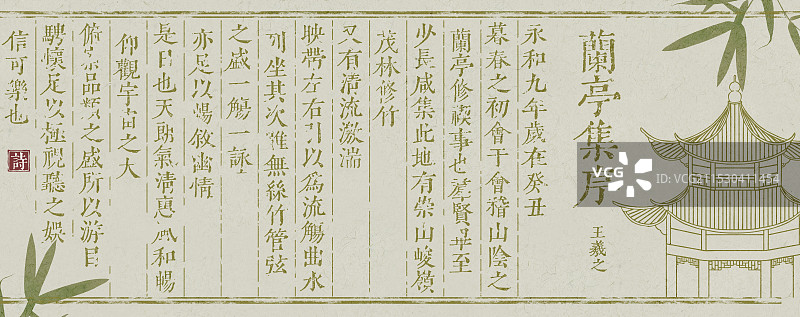 蘭亭集序
王羲之
永和九年歲在癸丑
暮春之初會于會稽山陰之
蘭亭修禊事也羣賢畢至
少長咸集此地有崇山峻嶺
茂林修竹
又有清流激湍
映帶左右引以為流觴曲水
列坐其次雖無絲竹管弦
之盛一觴一詠
亦足以暢敘幽情
是日也天朗氣清惠風和暢
仰觀宇宙之大
俯察品類之盛所以游目
騁懷足以極視聽之娛
信可樂也
詩
視覺中國
VCG211539411454